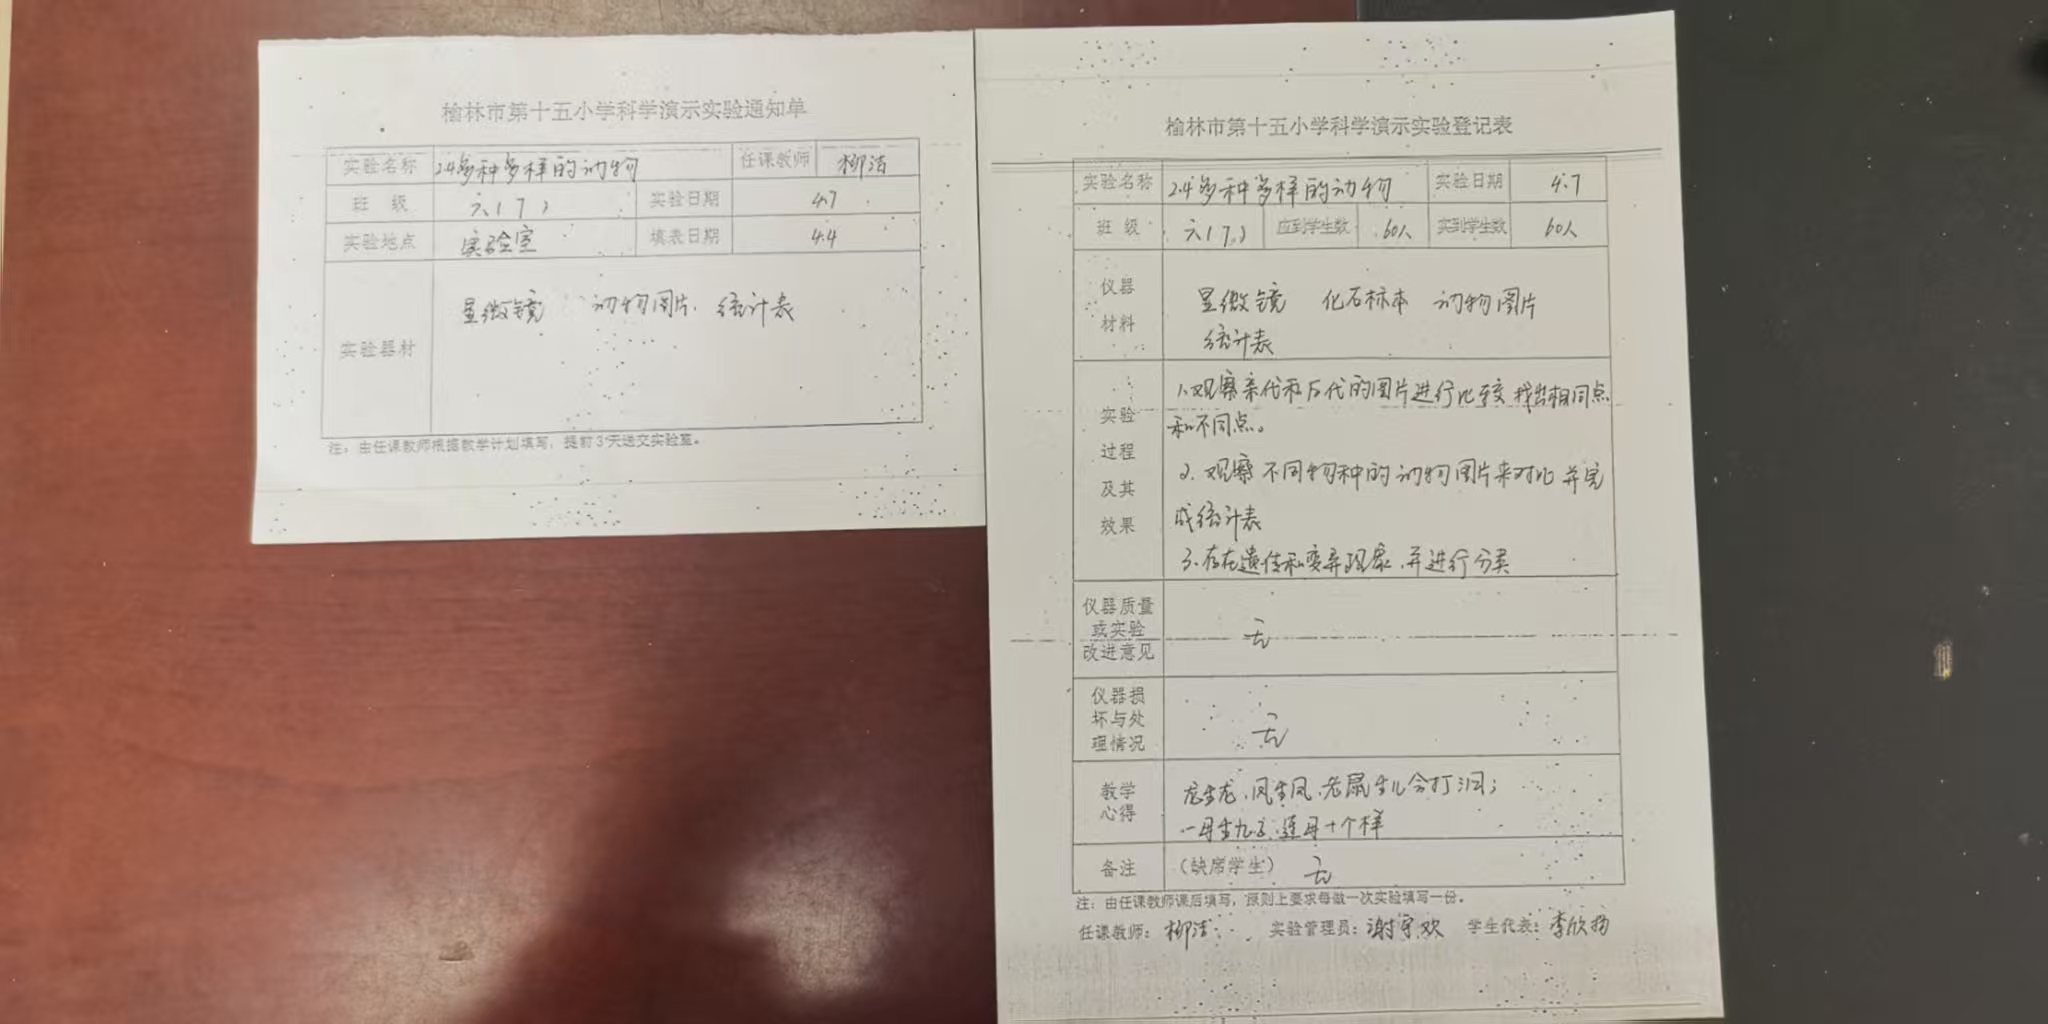 榆林市第十五小学科学演示实验通知单
实验名称 2.4多种多样的动物 任课教师 柳洁
班 级 六(7) 实验日期 4.7
实验地点 实验室 填表日期 4.4
实验器材 显微镜 动物图片、统计表
注：由任课教师根据教学计划填写，提前3天送交实验室。
榆林市第十五小学科学演示实验登记表
实验名称 2.4多种多样的动物 实验日期 4.7
班 级 六(7) 应到学生数 60人 实到学生数 60人
仪器
材料
显微镜 化石标本 动物图片
统计表
实验
过程
及其
效果
1.观察亲代和后代的图片进行比较 找出相同点
和不同点。
2.观察不同物种的动物图片来对比并完
成统计表
3.存在遗传和变异现象、并进行分类
仪器质量
或实验
改进意见
无
仪器损
坏与处
理情况
无
教学
心得
龙生龙、凤生凤、老鼠生儿会打洞；
一母生九子、连母十个样
备注 （缺席学生） 无
注：由任课教师课后填写，原则上要求每做一次实验填写一份。
任课教师：柳洁 实验管理员：谢宇欢 学生代表：李欣扬